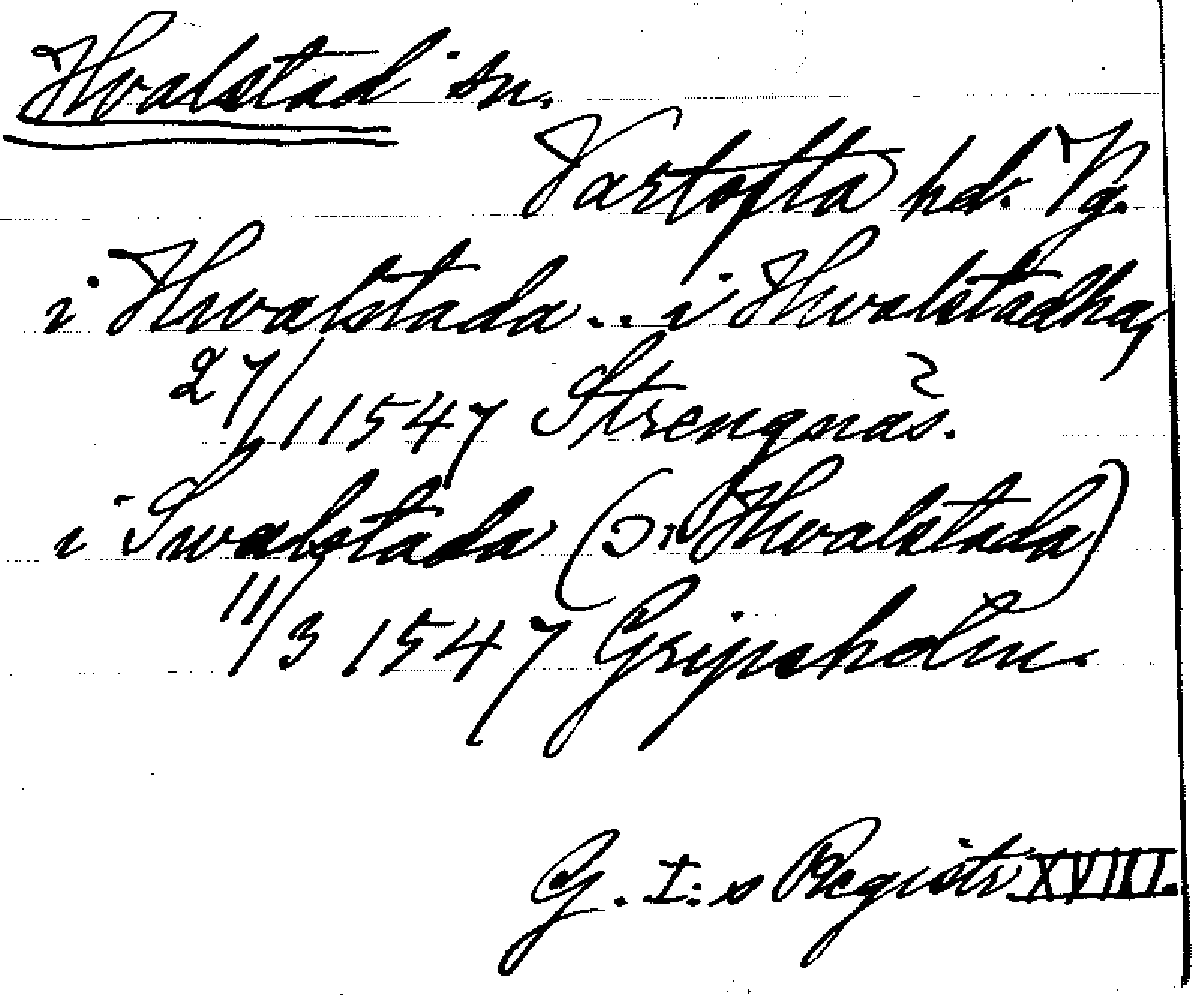 Hvalstad sn.
Vartofta hd. Vg.
i Hwalstada .. i Hwalstadha,
27/1 1547 Strengnäs.
i Swalstada (ɔ: Hvalstada)
11/3 1547 Gripsholm.
G. I:s Registr. XVIII.